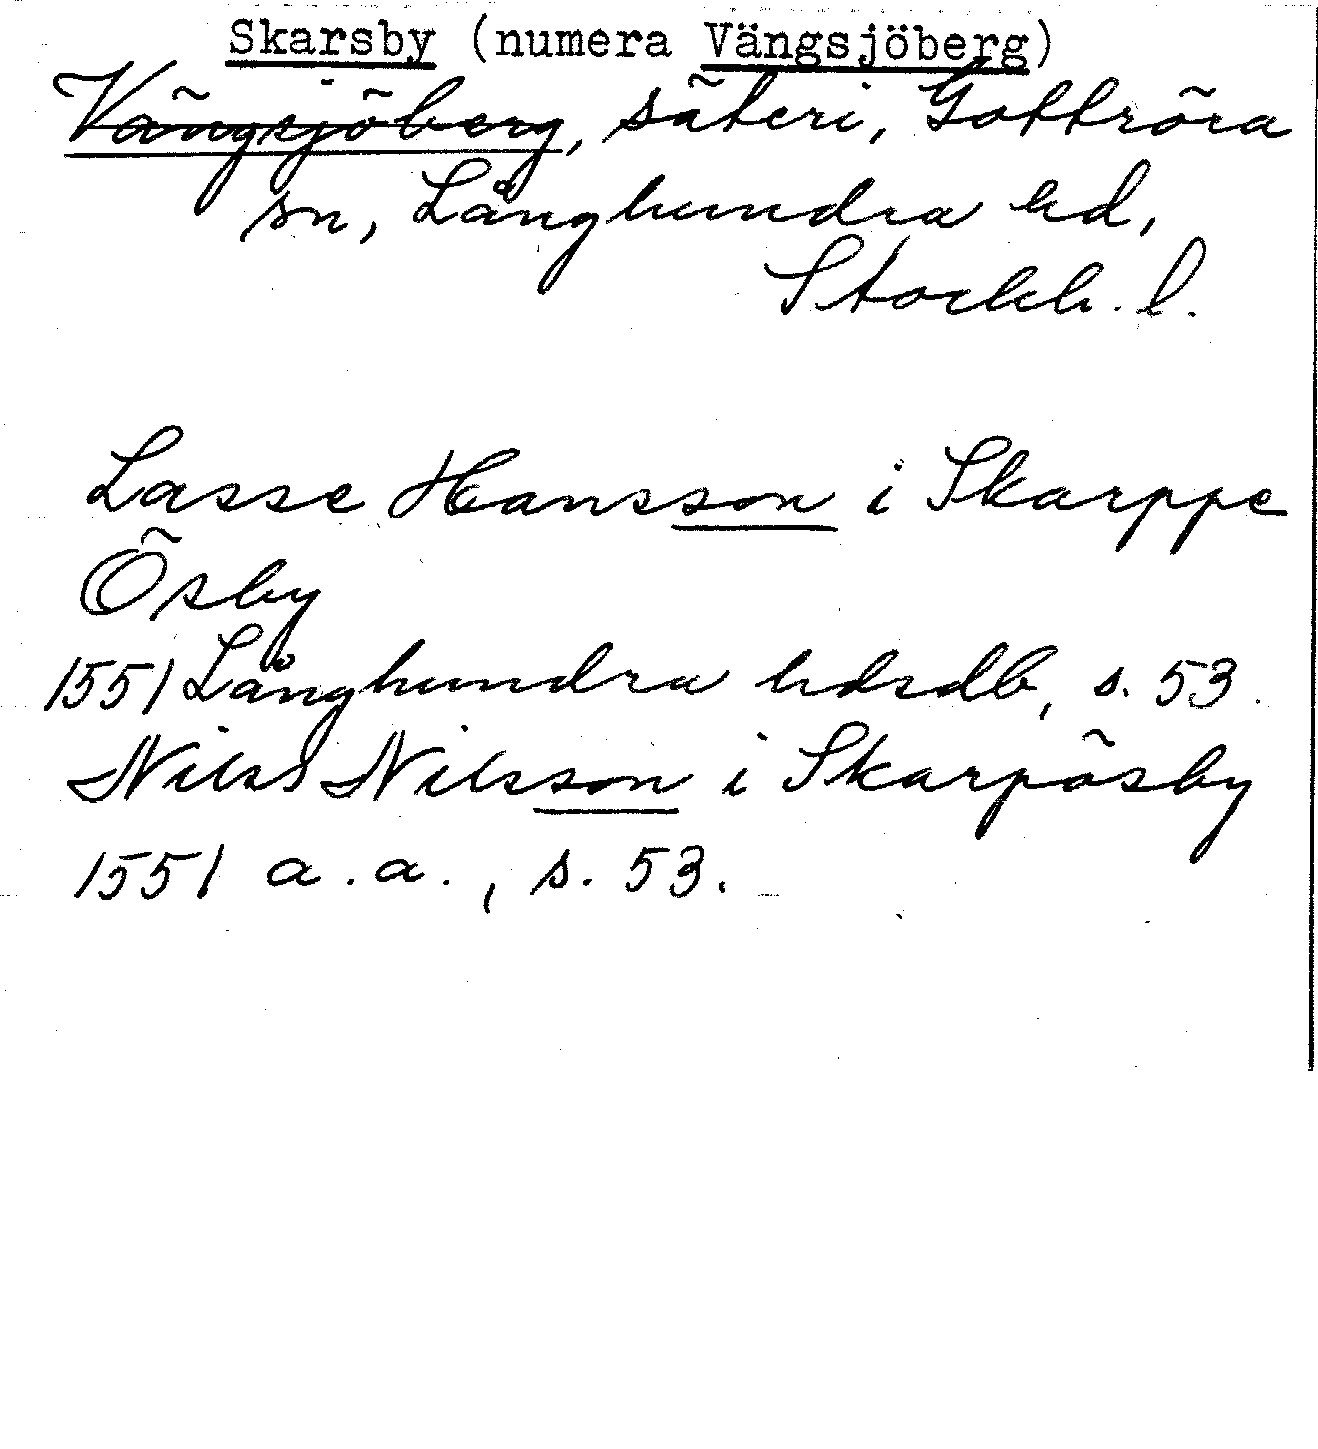 Skarsby (numera Vängsjöberg)
Vängsjöberg, säteri, Gottröra
sn, Långhundra hd,
Stockh. l.
Lasse Hansson i Skarppe
Ösby
1551 Långhundra hdsdb, s. 53.
Nilss Nilsson i Skarpösby
1551 a.a., s. 53.